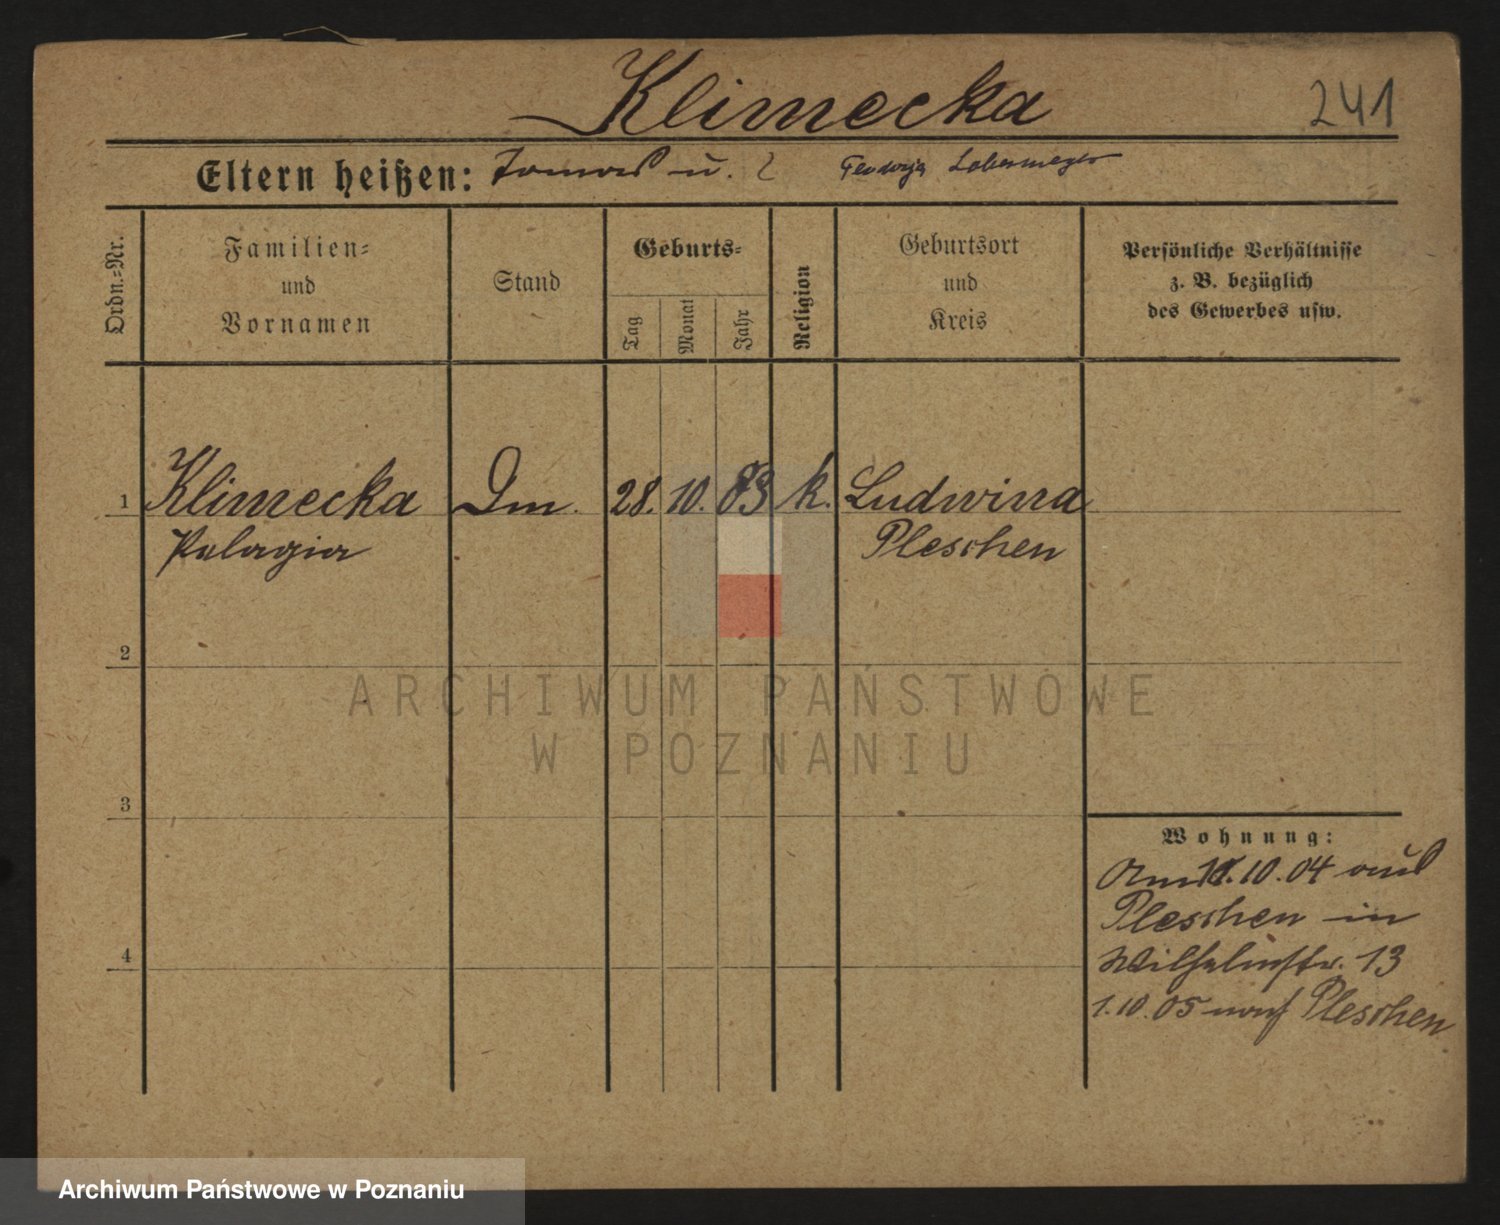 Klimecka
241
Eltern heißen: Tomas u. ? Teodozja
Ordn.-Nr.
Familien-
und
Vornamen
Stand
Geburts-
Tag
Monat
Jahr
Religion
Geburtsort
und
Kreis
Persönliche Verhältnisse
z. B. bezüglich
des Gewerbes usw.
1 Klimecka Dm. 28. 10. 83 k. Ludwina
Pelagia Pleschen
2
ARCHIWUM PAŃSTWOWE
W POZNANIU
3
Wohnung:
Am 10.04 aus
Pleschen in
4
Wilhelmstr. 13
1.10.05 nach Pleschen
Archiwum Państwowe w Poznaniu